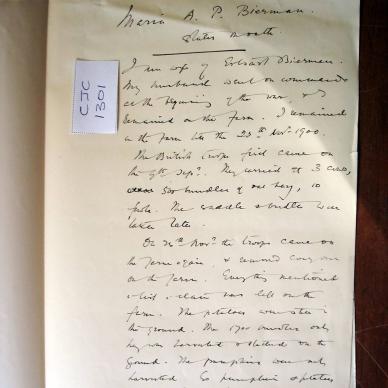 Maria A. P. Bierman.
states on oath.
CJC
1301
I am wife of Bierman.
My husband went on commando
at the beginning of the war, & I
remained on the farm. I remained
on the farm till the 25th Novr 1900.
The British troops first came on
the 9th Sept. They arrived at 3
500 bundles of oat hay, 10
The saddle & bridle was
taken later.
On 24th Novr the troops came on
the farm again, & removed every one
on the farm. Everything mentioned
claim was left on the
farm. The potatoes were still in
the ground. The 1700 bundles oat
hay was harvested & stacked on the
ground. The pumpkins were only
harvested. 60 pumpkins & potatoes